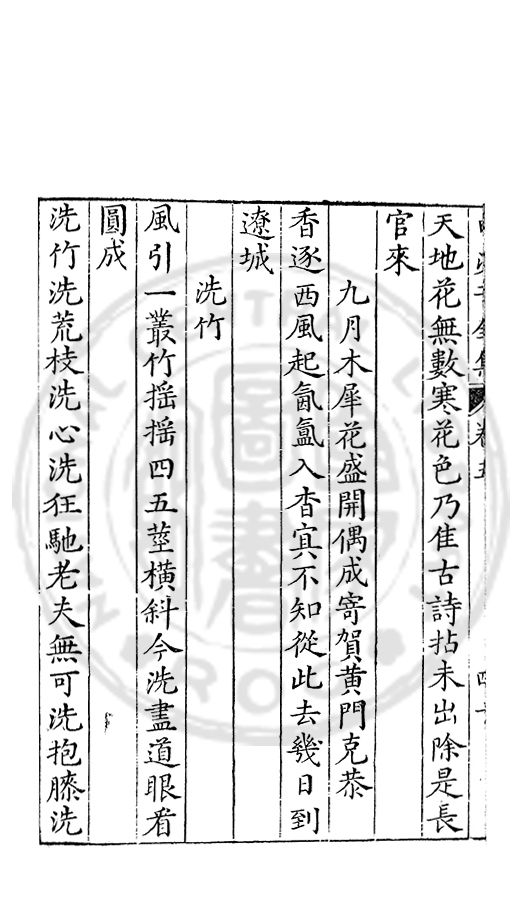 天地花無數寒花色乃隹古詩拈未出除是長
官來
九月木犀花盛開偶成寄賀黃門克恭
香逐西風起氤氳入杳冥不知從此去幾日到
遼城
洗竹
風引一叢竹搖搖四五莖橫斜今洗盡道眼看
圓成
洗竹洗荒枝洗心洗狂馳老夫無可洗抱膝洗